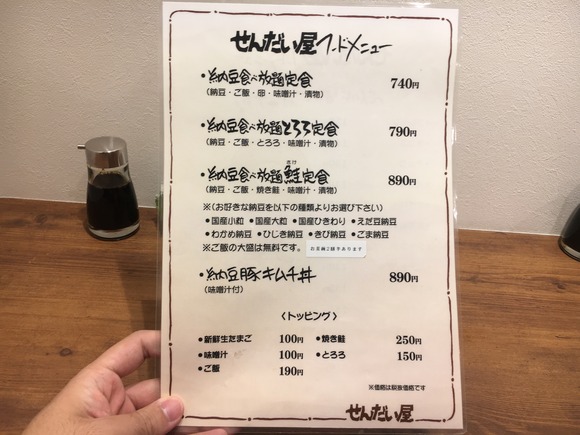 せんだい屋フードメニュー
・納豆食べ放題定食 740円
(納豆・ご飯・卵・味噌汁・漬物)
・納豆食べ放題とろろ定食 790円
(納豆・ご飯・とろろ・味噌汁・漬物)
・納豆食べ放題鮭定食 890円
(納豆・ご飯・焼き鮭・味噌汁・漬物)
※(お好きな納豆を以下の種類よりお選び下さい)
●国産小粒 ●国産大粒 ●国産ひきわり ●えだ豆納豆
●わかめ納豆 ●ひじき納豆 ●きび納豆 ●ごま納豆
※ご飯の大盛は無料です。
・納豆豚キムチ丼 890円
(味噌汁付)
〈トッピング〉
●新鮮生たまご 100円 ●焼き鮭 250円
●味噌汁 100円 ●とろろ 150円
●ご飯 190円
※価格は税抜価格です
せんだい屋